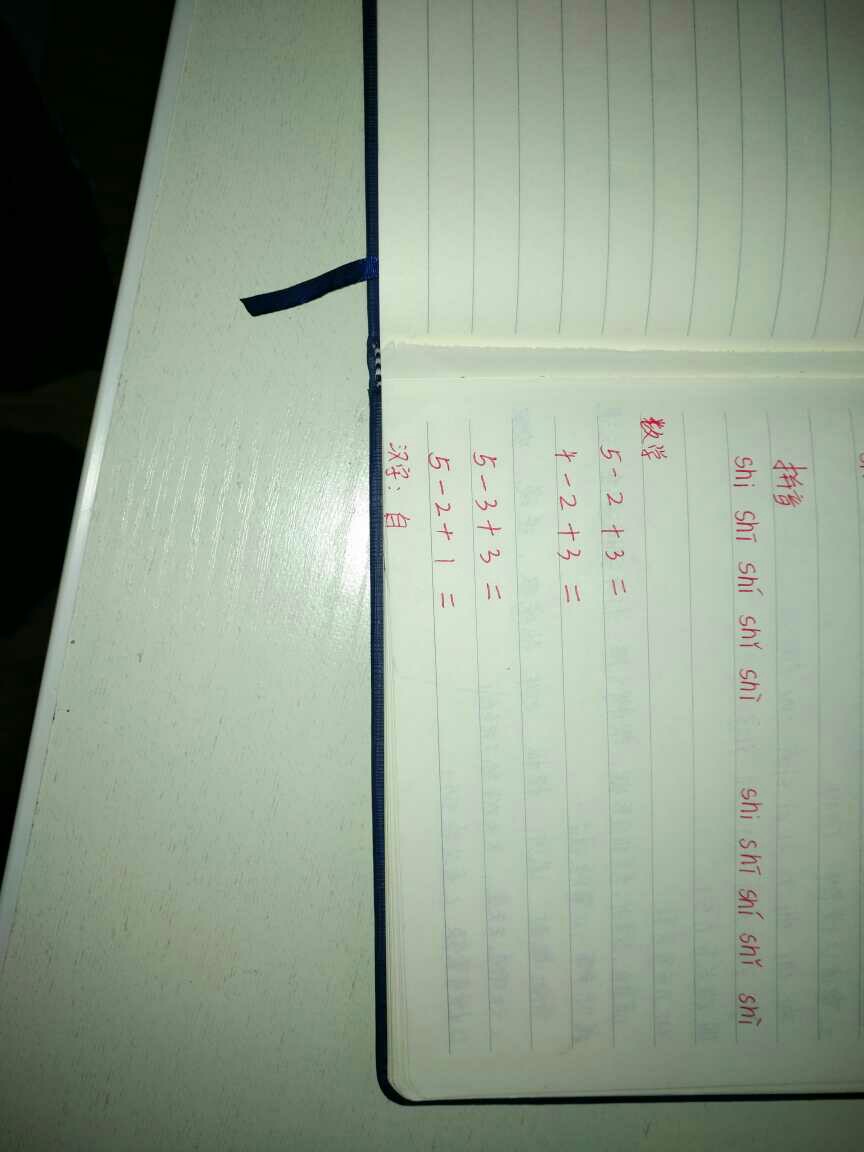 拼音
shi shī shí shǐ shì shi shī shí shǐ shì
数学
5-2+3=
4-2+3=
5-3+3=
5-2+1=
汉字: 自